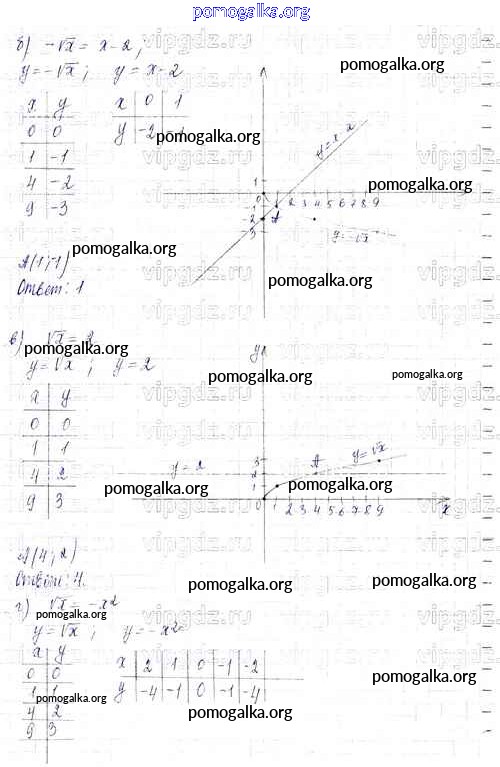 pomogalka.org
б) -√x = x-2;
y=-√x; y=x-2
pomogalka.org
x y
0 0
1 -1
4 -2
9 -3
x 0 1
y -2
pomogalka.org
y=x-2
pomogalka.org
1
0 1 2 3 4 5 6 7 8 9
-1
-2
-3
A
y=-√x
A(1;-1)
pomogalka.org
Ответ: 1
pomogalka.org
в) √x = 2
pomogalka.org
y=√x; y=2
pomogalka.org
pomogalka.org
x y
0 0
1 1
4 2
9 3
y
y=2
A
y=√x
3
2
1
0 1 2 3 4 5 6 7 8 9
x
pomogalka.org
pomogalka.org
A(4;2)
Ответ: 4.
pomogalka.org
pomogalka.org
г) √x = -x2
pomogalka.org
y=√x; y=-x2
x y
0 0
1 1
4 2
9 3
x 2 1 0 -1 -2
y -4 -1 0 -1 -4
pomogalka.org
pomogalka.org
pomogalka.org
vipgdz.ru